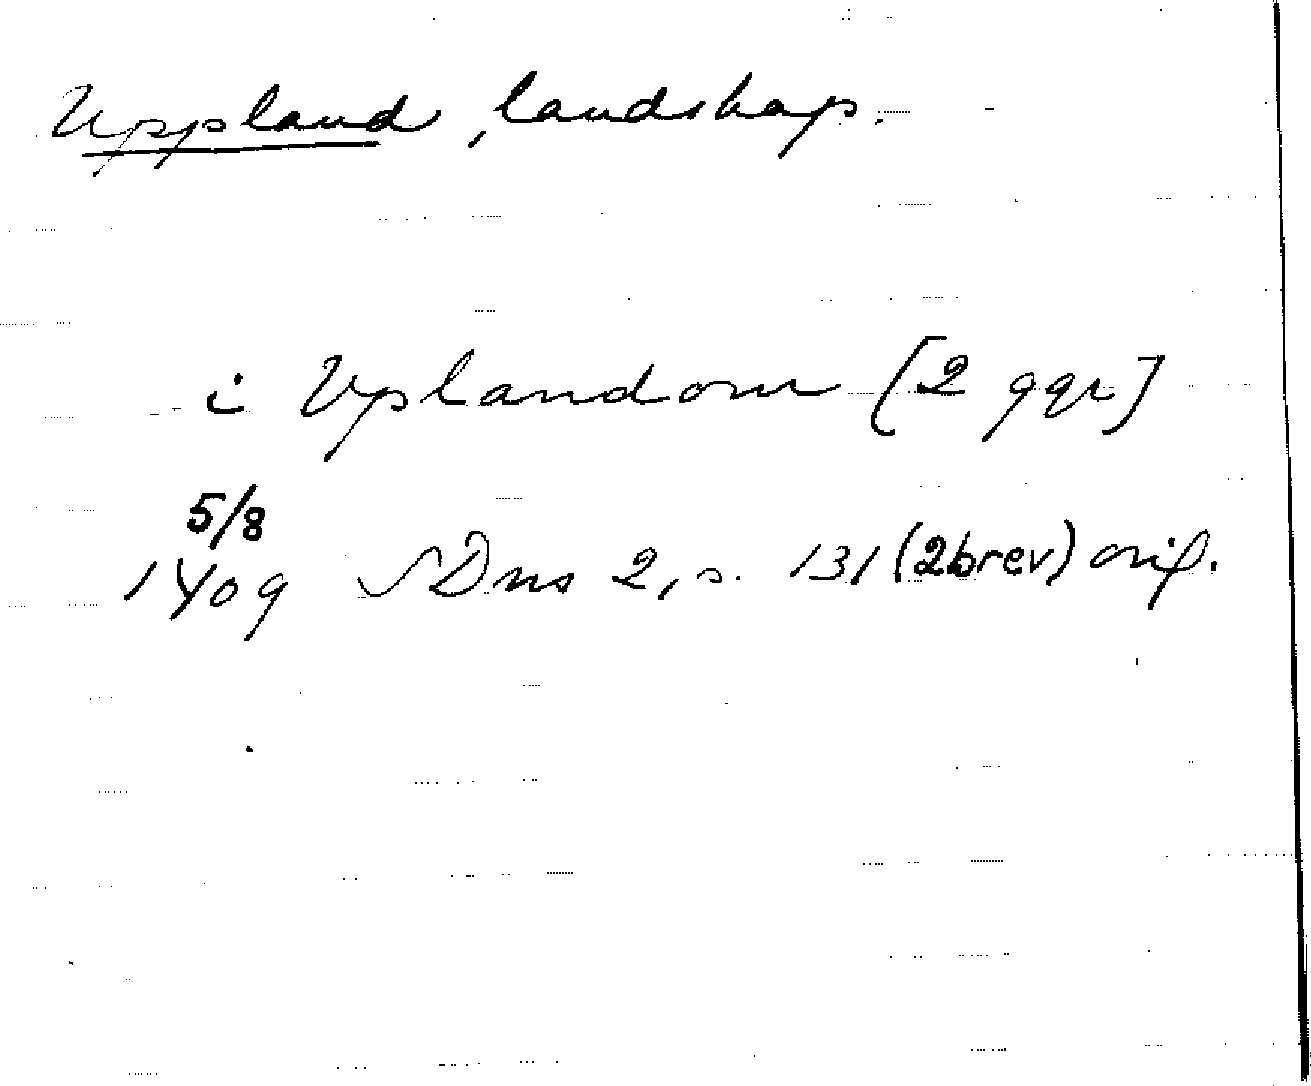 Uppland, landskap.
i Vplandom [2 ggr]
5/8
1409 SDns 2, s. 131 (2brev) orig.